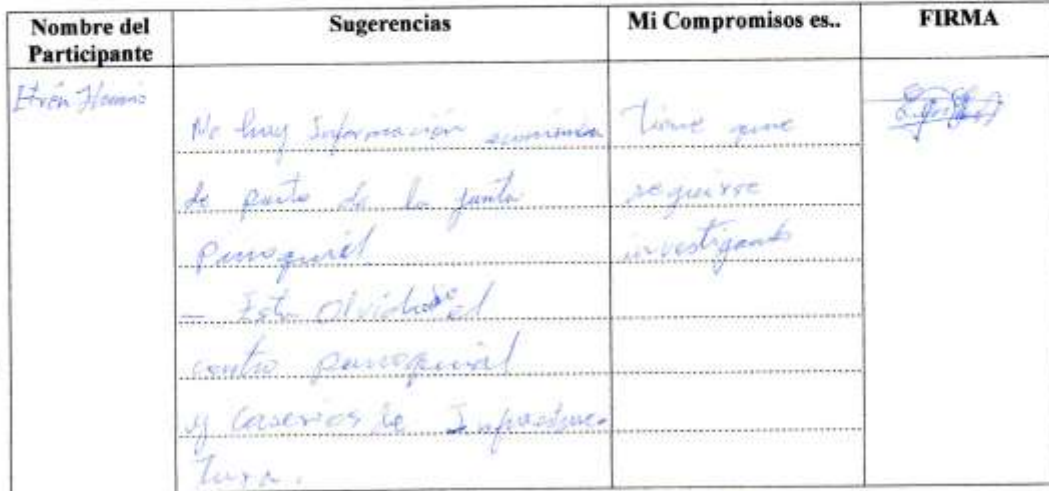 Nombre del Participante
Sugerencias
Mi Compromisos es..
FIRMA
Efrén
No huy Información económica
de parte de la junta
Parroquial
- Esta Olvidado el
centro parroquial
y Caserios de Infraestruc-
tura.
Tiene que
seguirse
investigando